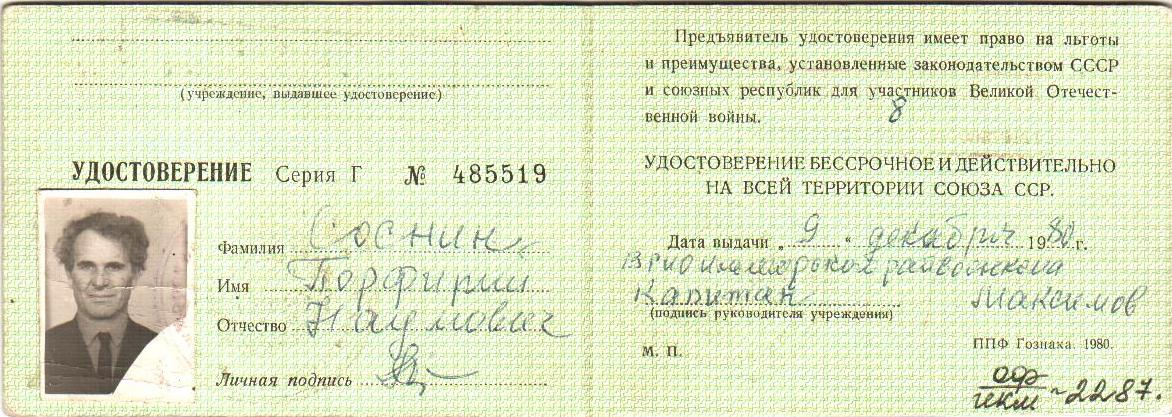 (учреждение, выдавшее удостоверение)
УДОСТОВЕРЕНИЕ Серия Г № 485519
Фамилия Соснин
Имя Порфирий
Отчество Наумович
Личная подпись
Предъявитель удостоверения имеет право на льготы
и преимущества, установленные законодательством СССР
и союзных республик для участников Великой Отечест-
венной войны. 8
УДОСТОВЕРЕНИЕ БЕССРОЧНОЕ И ДЕЙСТВИТЕЛЬНО
НА ВСЕЙ ТЕРРИТОРИИ СОЮЗА ССР.
Дата выдачи „ 9 “ декабря 1980 г.
Врио райвоенкома
Капитан Максимов
(подпись руководителя учреждения)
М. П.
ППФ Гознака. 1980.
ОФ
ИКМ ~2287.